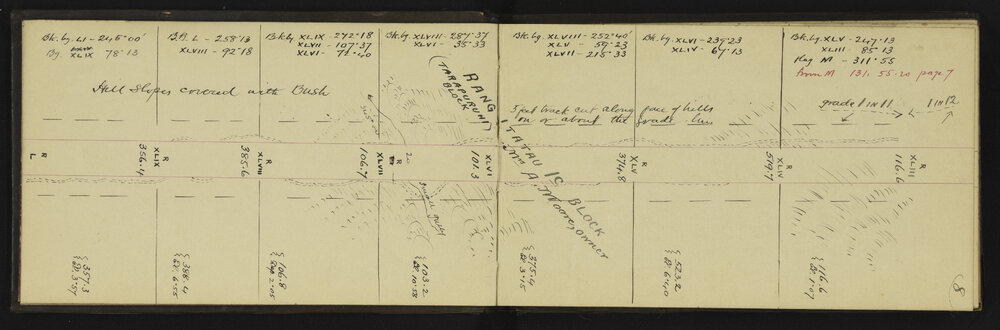 Bk. bg. LI - 245°00'
Bg. XLIX 78°13
B.B. L - 258°13
XLVIII - 92°18
Bk bg XLIX - 272°18
XLVII - 107°37
XLVI - 71°40
Bk. bg. XLVIII - 287°37
XLVI - 35°33
Bk. bg. XLVIII - 252°40'
XLV - 59°23
XLVII - 215°33
Bk. bg. XLVI - 239°23
XLIV - 67°13
Bk. bg. XLV - 247°13
XLIII 85°13
Flag M - 311°55
from M 131.55.20 page 7
Hill Slopes covered with Bush
RANG
(TARAPURUHI)
BLOCK
5 feet track cut along face of hills
on or about the grade line
grade 1 IN 11
1 IN 12
R
L
R
XLIX
356.4
R
XLVIII
385.6
R
XLVII
106.7
20
XLVI
101.3
R
374.8
R
XLIV
519.7
R
XLIII
116.6
ITATAU 1C BLOCK
Mr A. Moore, owner
small gully
357.3
El. 3.59
388.4
El. 6.55
106.8
Dep 2.05
103.2
El. 10.58
375.4
El. 3.15
523.2
El. 6.40
116.6
El. 1.07
8